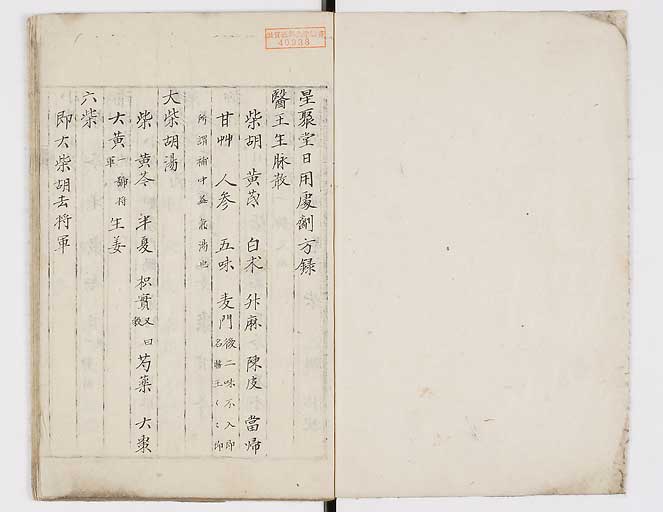 星聚堂日用處劑方録
醫王生脉散
柴胡 黄芪 白朮 升麻 陳皮 當帰
甘艸 人参 五味 麦門 後二味不入即
名醫王く
所謂補中益氣湯也
大柴胡湯
柴 黄芩 半夏 枳實 又曰 芍薬 大棗
大黄 一郷将軍 生姜
六柴
即大柴胡去将軍
40938